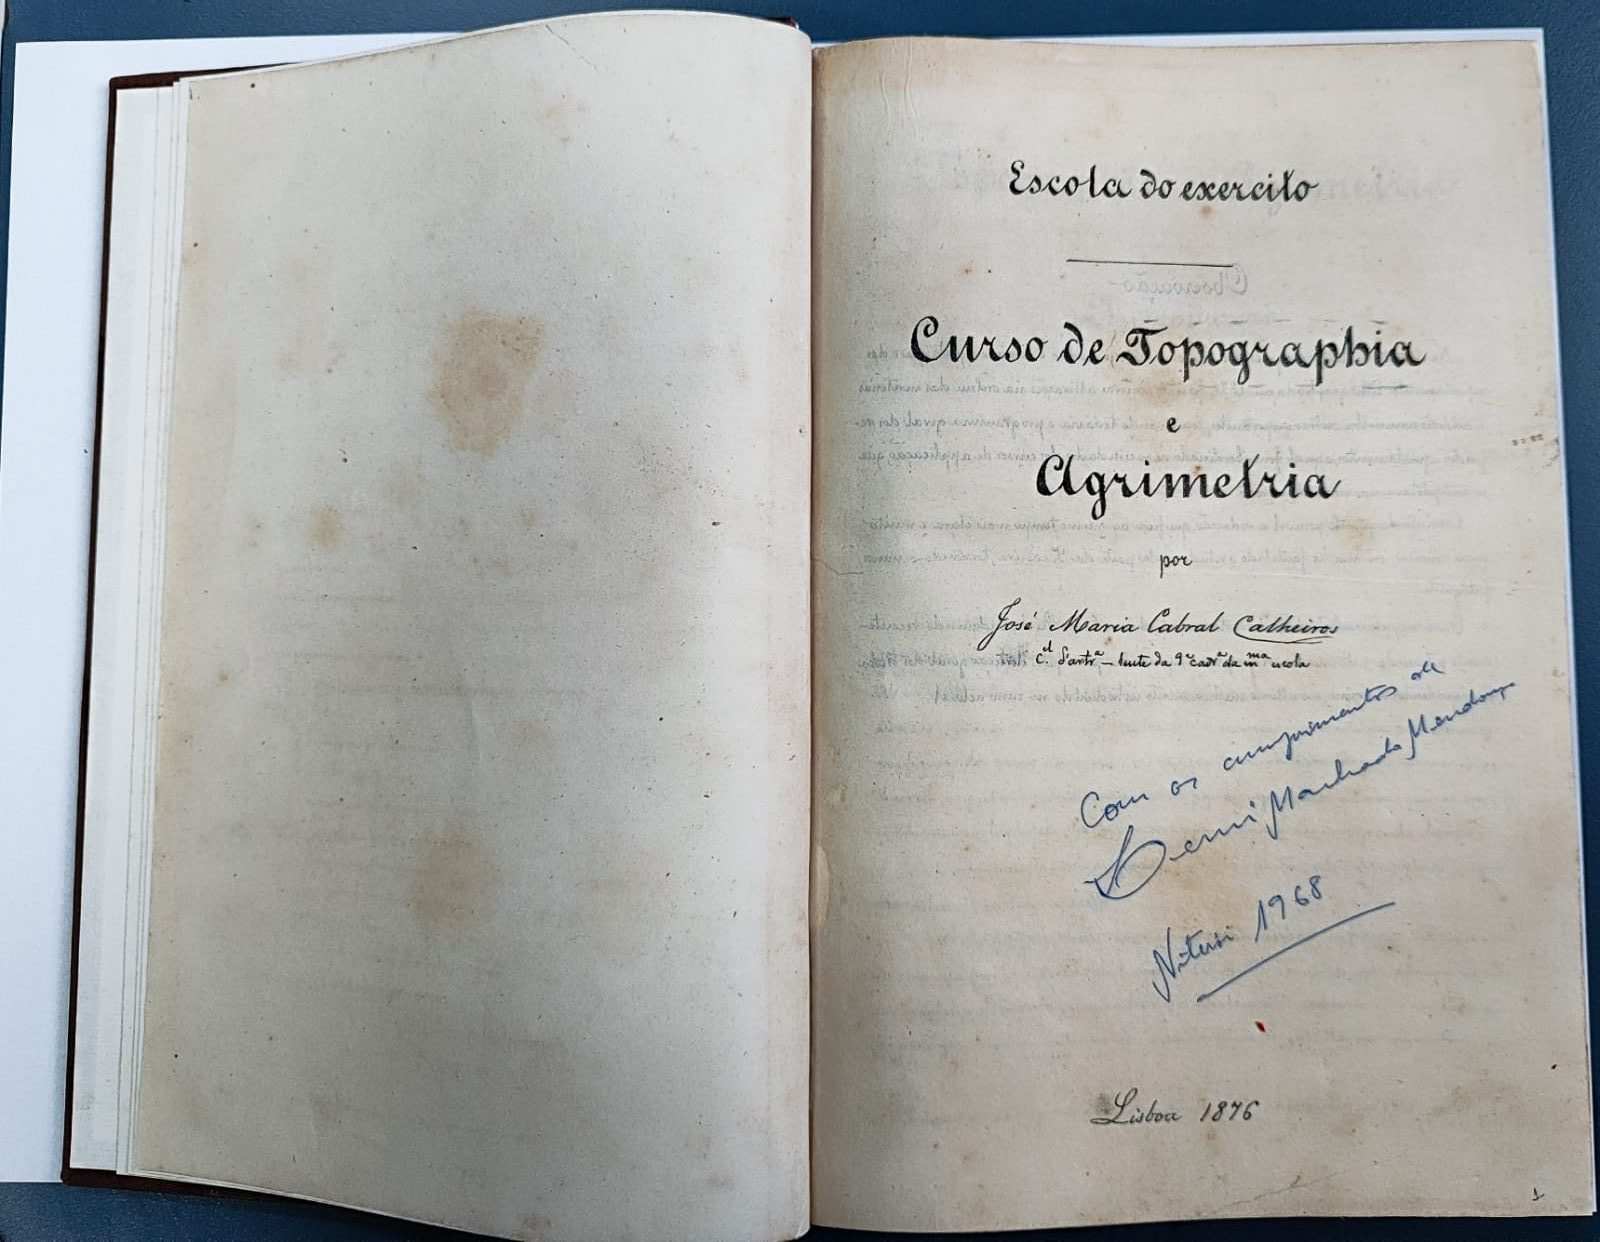 Escola do exercito
Curso de Topographia
e
Agrimetria
por
José Maria Cabral Calheiros
C.el d'artr.ª – lente da 9ª cadrª da mma escola
Com os cumprimentos de
Machado Mendonça
Niterói 1968
Lisboa 1876
1